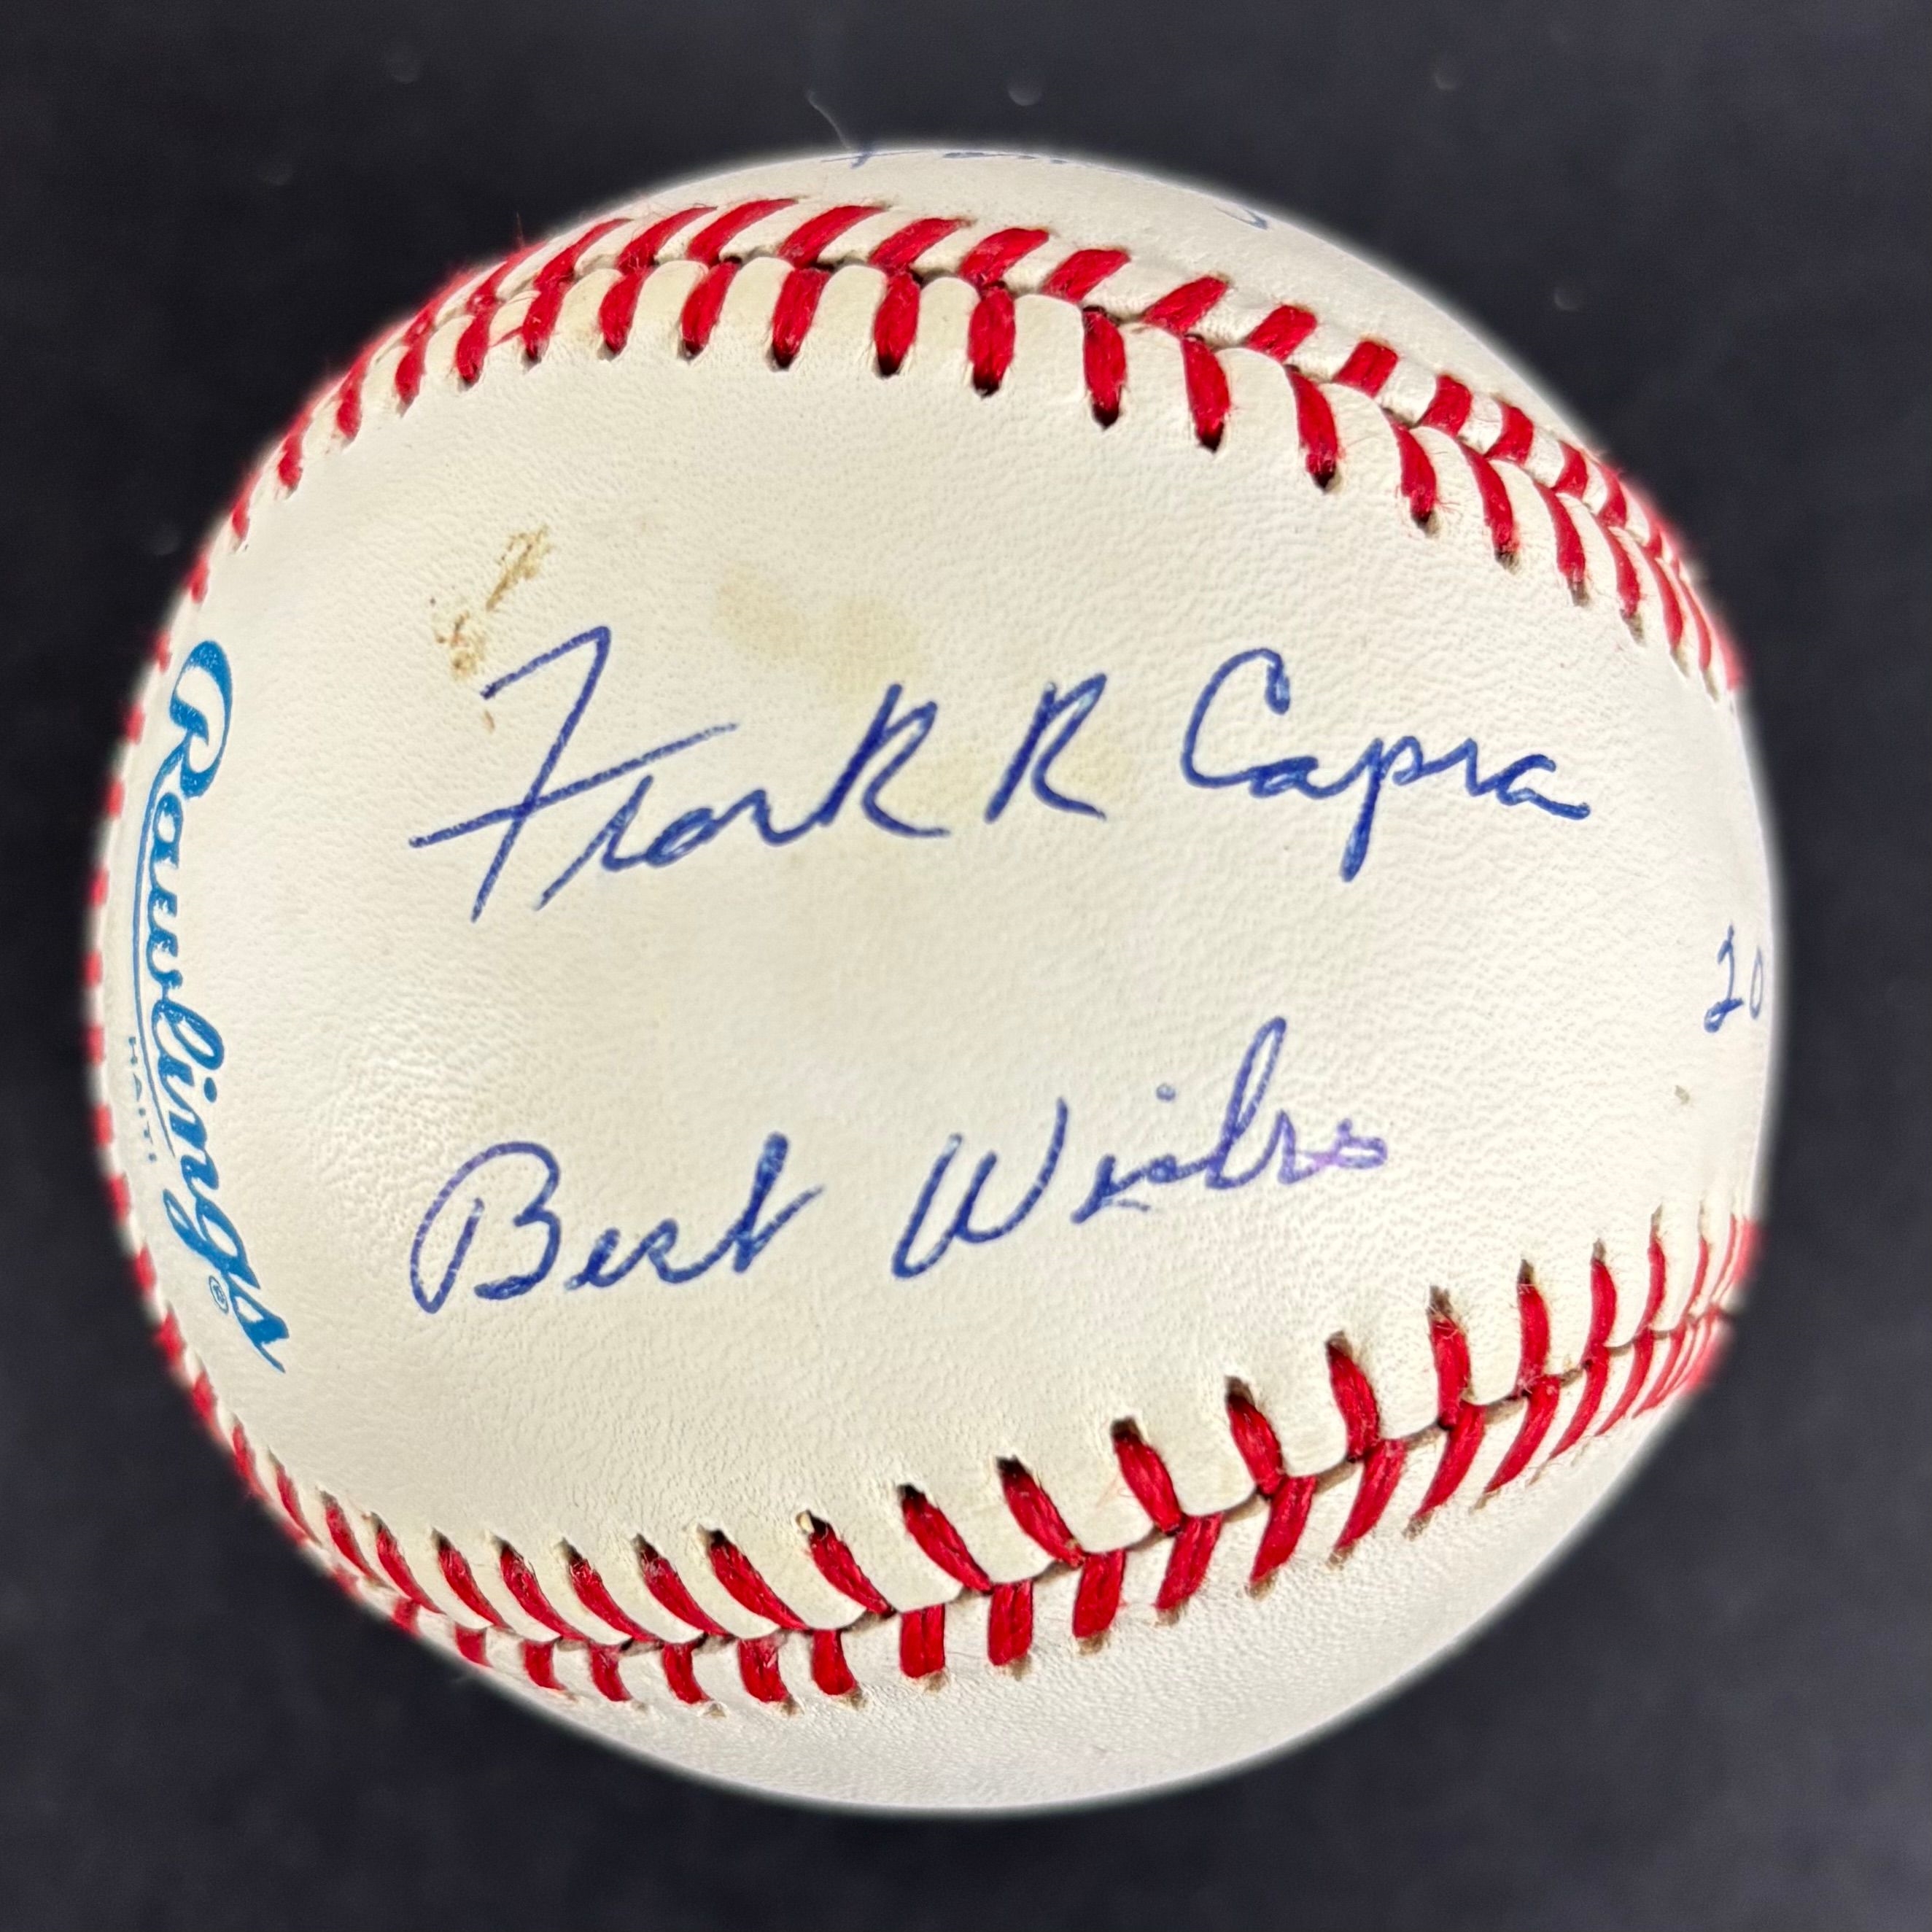 Frank R Capra
Best Wishes
Rawlings
HAITI
20